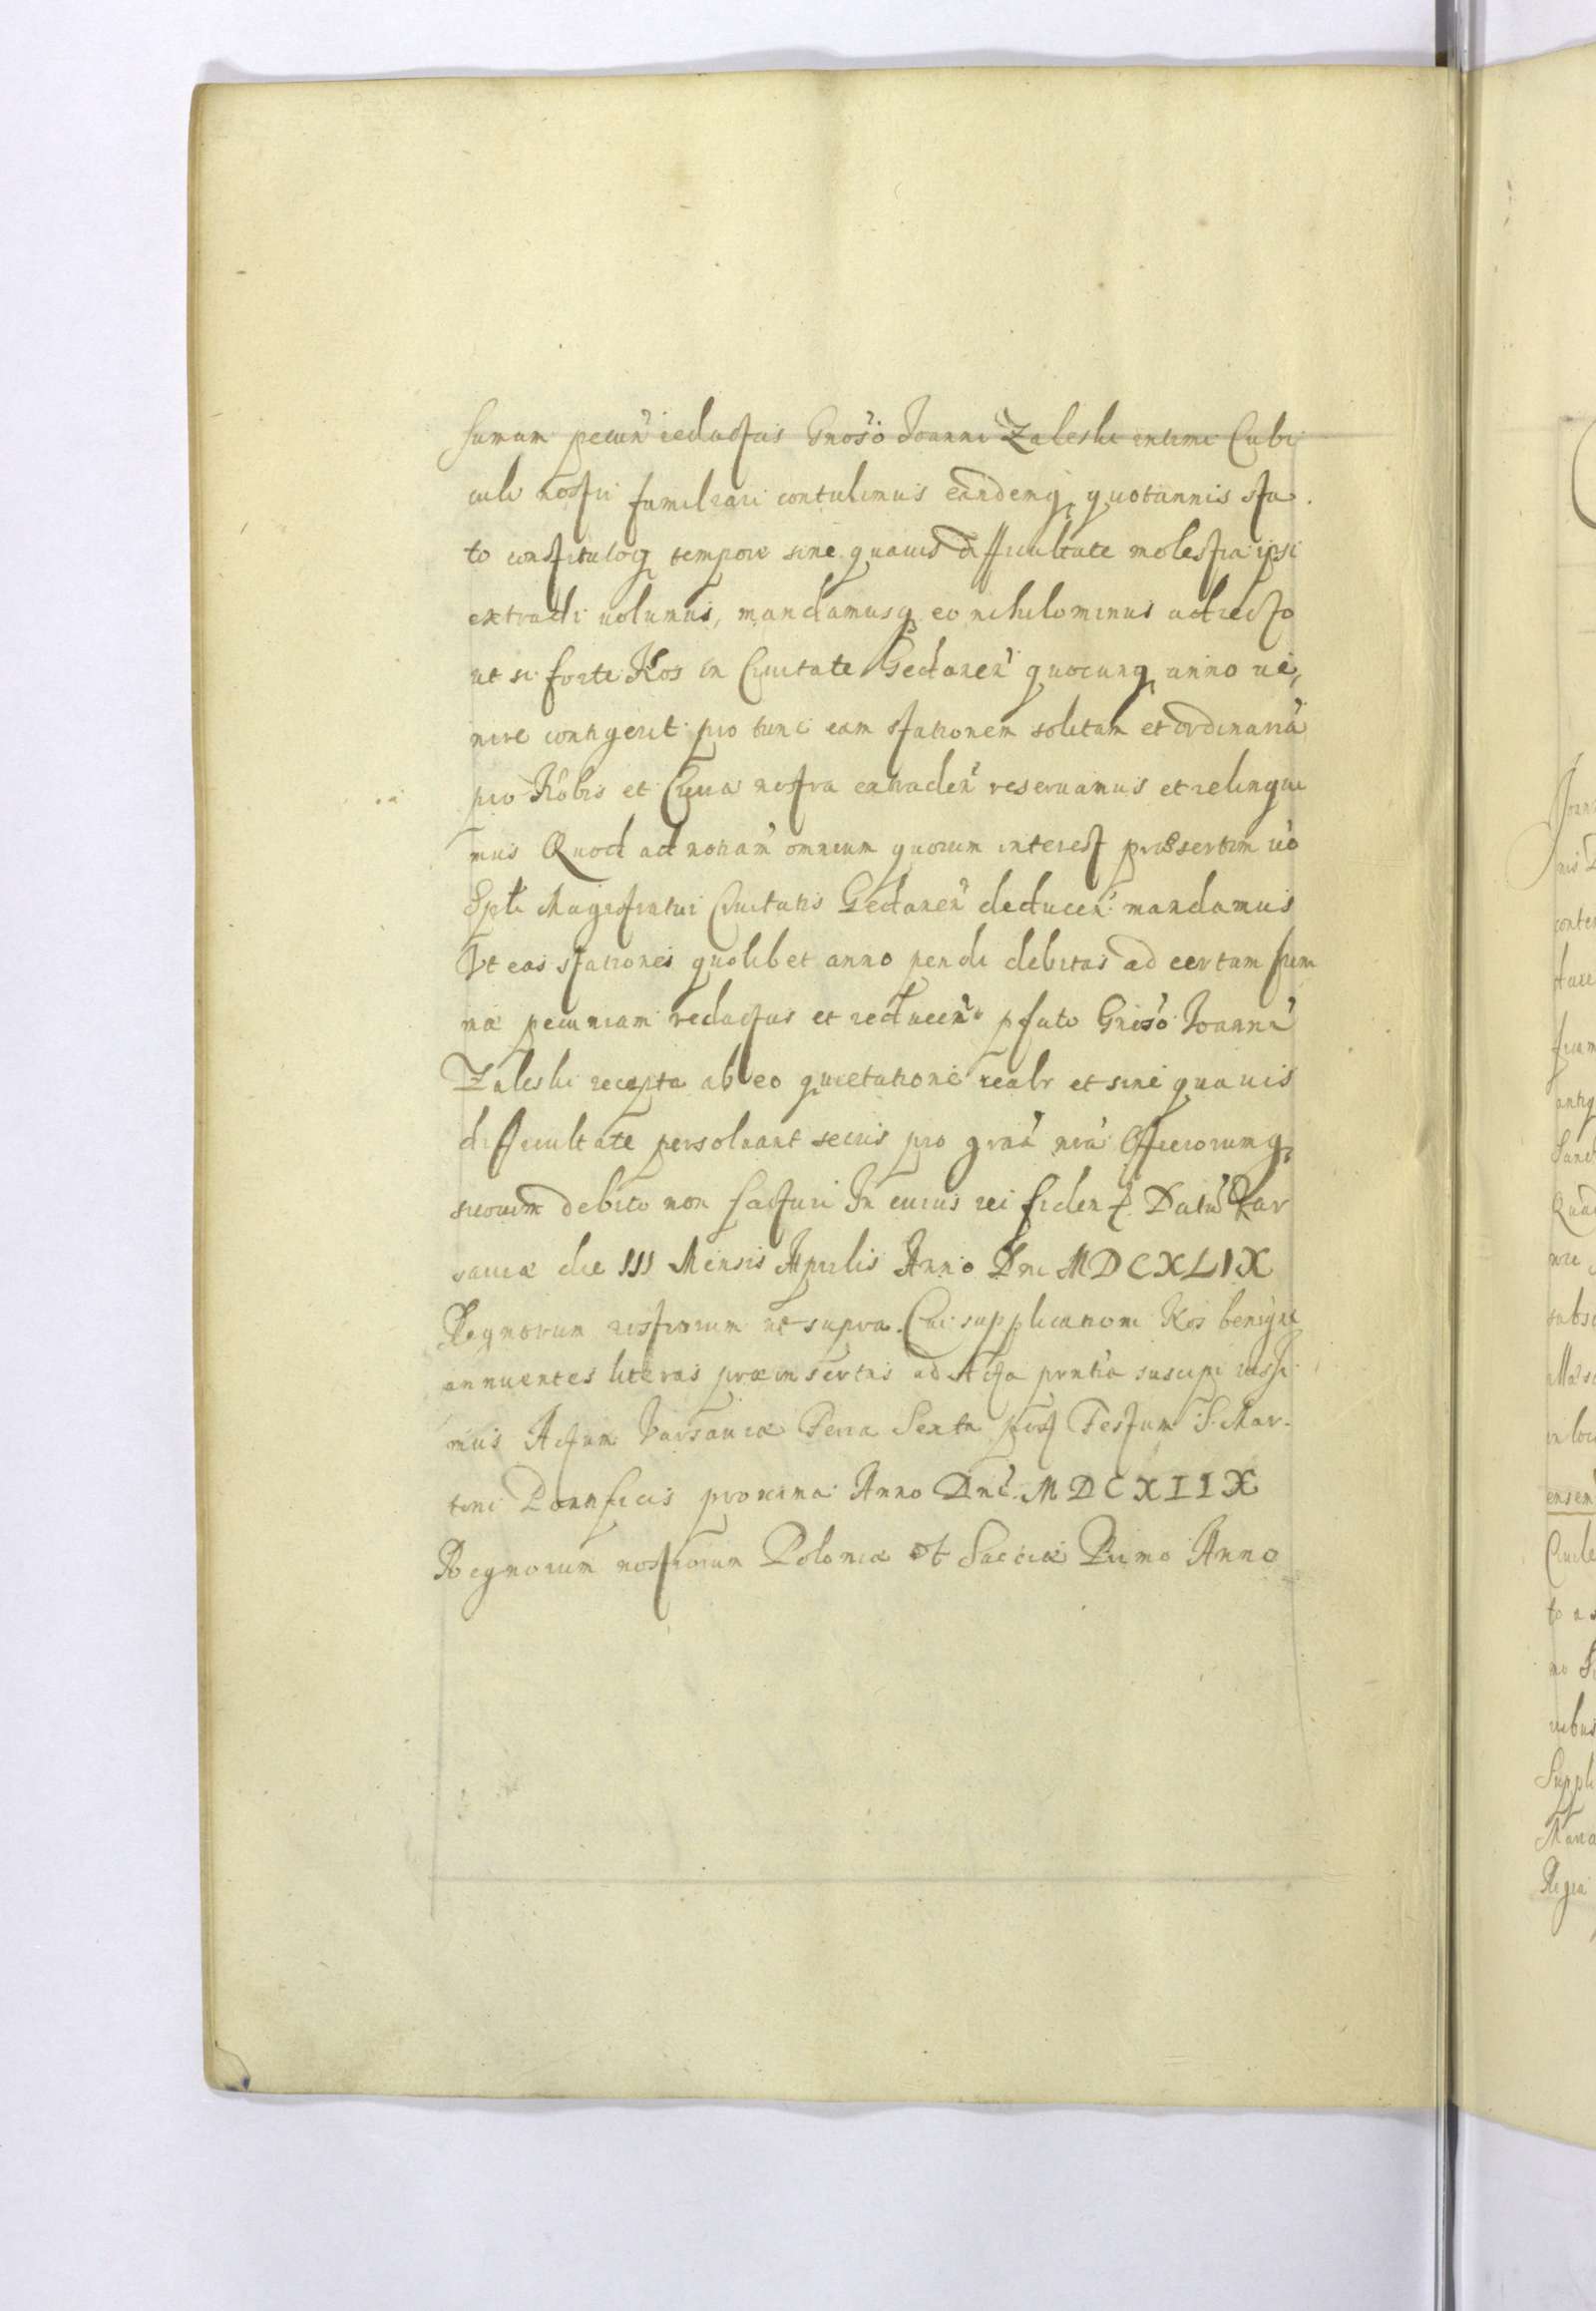 sumam pecun̄ redactas Gnoso Joanni Zaleski intimi Cubi
culi nostri familiari contulimus eandemq quotannis sta
to constitutoq tempore sine quauis difficultate molestia ipsi
extradi uolumus, mandamusq eo nihilominus adiecto
ut si forte Nos in Ciuitate Gedanen quocunq anno ue,
nire contigerit pro tunc eam stationem solitam et ordinariā
pro Nobis et Curia nostra extraden reseruamus et relinqui
mus Quod ad notiam omnium quorum interest præsertim uo
Splī Magistratui Ciuitatis Gedanen deducen mandamus
Vt eas stationes quolibet anno pendi debitas ad certam sum
mā pecuniam redactas et reducen pfato Gnoso Joanni
Zaleski recepta ab eo quietatione realr et sine quauis
difficultate persoluant secus pro gratiā nrā Officiorumq
suorum debito non facturi In cuius rei fidem Datū Var
sauiæ die III Mensis Aprilis Anno Dni MDCXLIX
Regnorum nostrorum ut supra. Cui supplicationi Nos benigne
annuentes literas præinsertas ad Acta prntia suscipi iussi
mus Actum Varsauiæ Feria Sexta post Festum S. Mar-
tini Pontificis proxima Anno Dni MDCXIIX
Regnorum nostrorum Poloniæ et Sueciæ Primo Anno